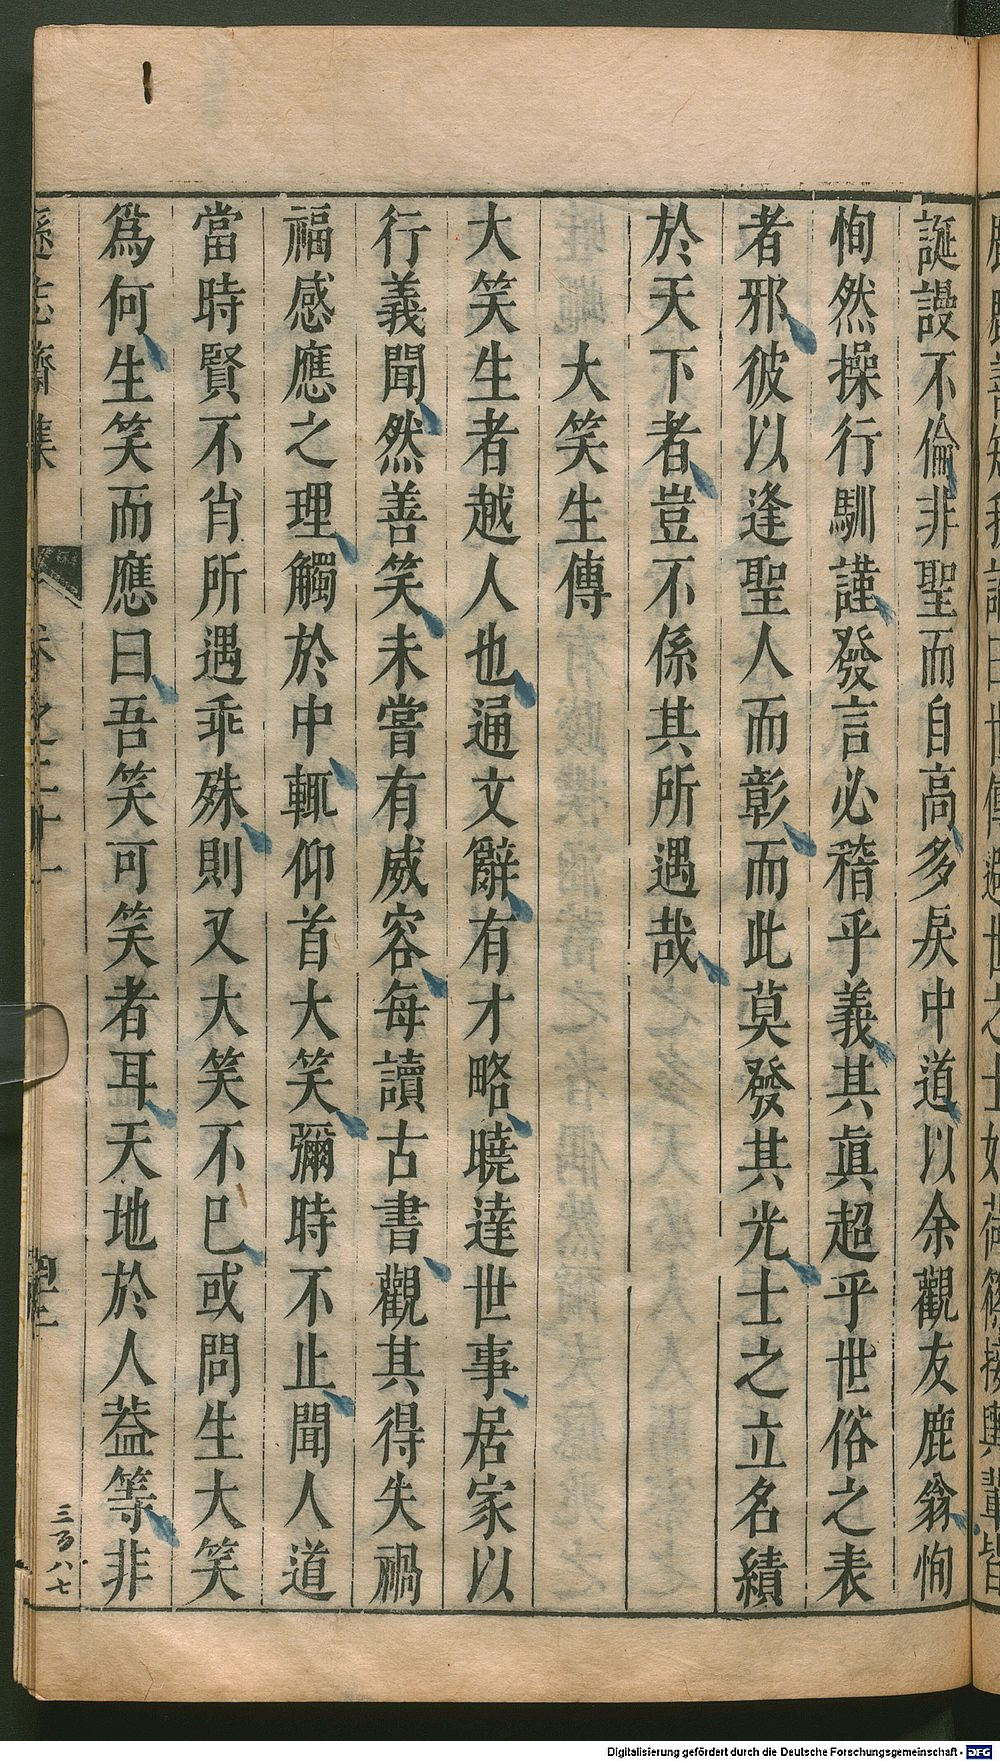 誕謾不倫非聖而自高多戾中道以余觀友鹿翁恂
恂然操行馴謹發言必稽乎義其眞超乎世俗之表
者邪彼以逢聖人而彰而此莫發其光士之立名績
於天下者豈不係其所遇哉
大笑生傳
大笑生者越人也通文辭有才略曉達世事居家以
行義聞然善笑未嘗有威容每讀古書觀其得失禍
福感應之理觸於中輒仰首大笑彌時不止聞人道
當時賢不肖所遇乖殊則又大笑不已或問生大笑
爲何生笑而應曰吾笑可笑者耳天地於人葢等非
遜志齋集
卷之二十一
三百八七
Digitalisierung gefördert durch die Deutsche Forschungsgemeinschaft - DFG